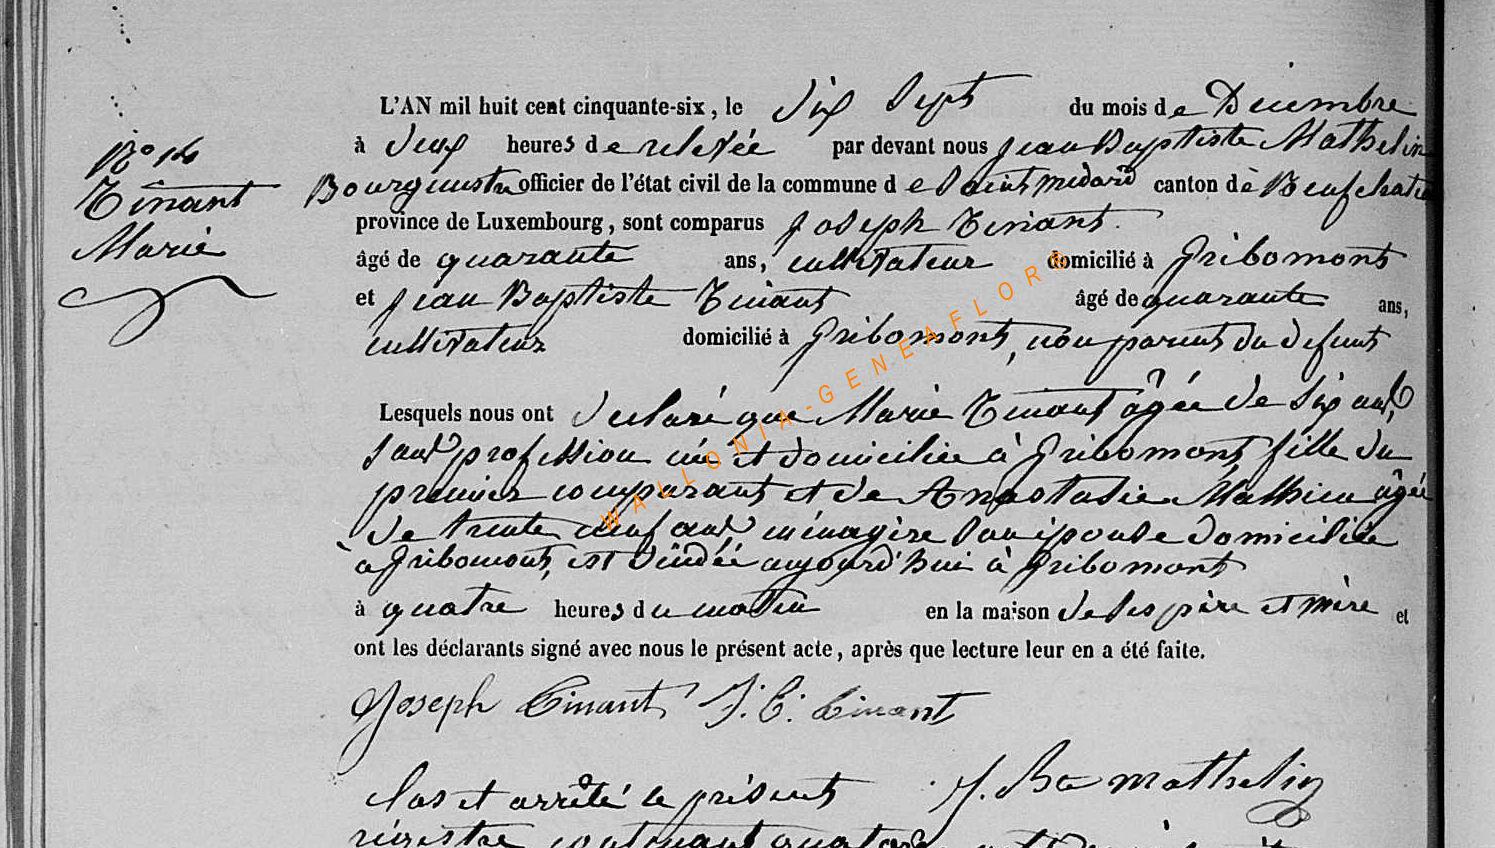 L'AN mil huit cent cinquante-six, le dix sept du mois de Décembre
à deux heures de relevée par devant nous Jean Baptiste Mathelin
Bourgmestre officier de l'état civil de la commune de Saint médard canton de Neufchateau
province de Luxembourg, sont comparus Joseph Tinant
âgé de quarante ans, cultivateur domicilié à Gribomont
et Jean Baptiste Tinant âgé de quarante ans,
cultivateur domicilié à Gribomont, non parent du defunt
Lesquels nous ont declaré que Marie Tinant âgée de six ans,
sans profession née et domiciliée à Gribomont fille du
premier comparant et de Anastasie Mathieu âgée
de trente neuf ans ménagère son épouse domiciliée
à Gribomont, est décédée aujourd'hui à Gribomont
à quatre heures du matin en la maison de ses père et mère et
ont les déclarants signé avec nous le présent acte, après que lecture leur en a été faite.
Joseph Tinant J. B. Tinant
J. Ba mathelin
Clos et arrêté le présent
régistre contenant quatorze
N° 14
Tinant
Marie
WALLONIA-GENEAFLORE